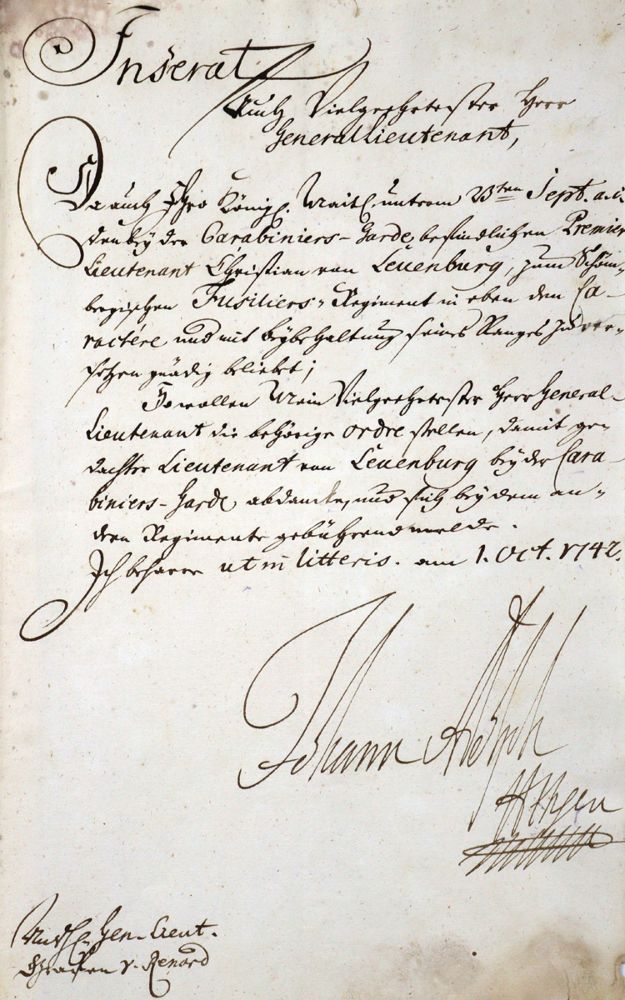 Inserat
Auch Vielgeehrtester Herr
GeneralLieutenant,
Da auch Ihro Königl. Maitt. unterm 23ten Sept. a.c.
den bey der Carabiniers-Garde befindlichen Premier
Lieutenant Christian von Leuenburg, zum Schöm-
bergischen Fusiliers-Regiment in eben dem Ca-
ractére und mit beybehaltung seines Ranges zu ver-
sezen gnädig beliebet;
So wollen Mein Vielgeehrtester Herr General-
Lieutenant die behörige ordre stellen, damit ge-
dachter Lieutenant von Leuenburg bey der Cara-
biniers-Garde abdancke, und sich bey dem an-
dern Regimente gebührend melde.
Ich beharre ut in litteris. am 1. Oct. 1742.
Johann Adolph
HzSzen
Gen-Lieut.
Graffen v. Renard